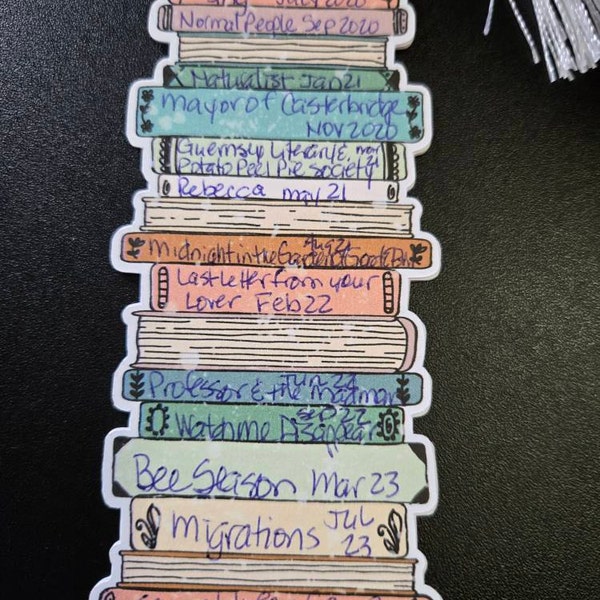 July 2020
Normal People Sep 2020
Naturalist Jan 21
Mayor of Casterbridge
Nov 2020
Guernsey Literary & May
Potato Peel Pie Society 21
Rebecca May 21
Aug 21
Midnight in the Garden of Good & Evil
Last Letter from your
Lover Feb 22
Jun 22
Professor & the Madman
Sep 22
Watch me Disappear
Bee Season Mar 23
Migrations Jul
23